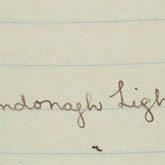 ndonagh Ligh